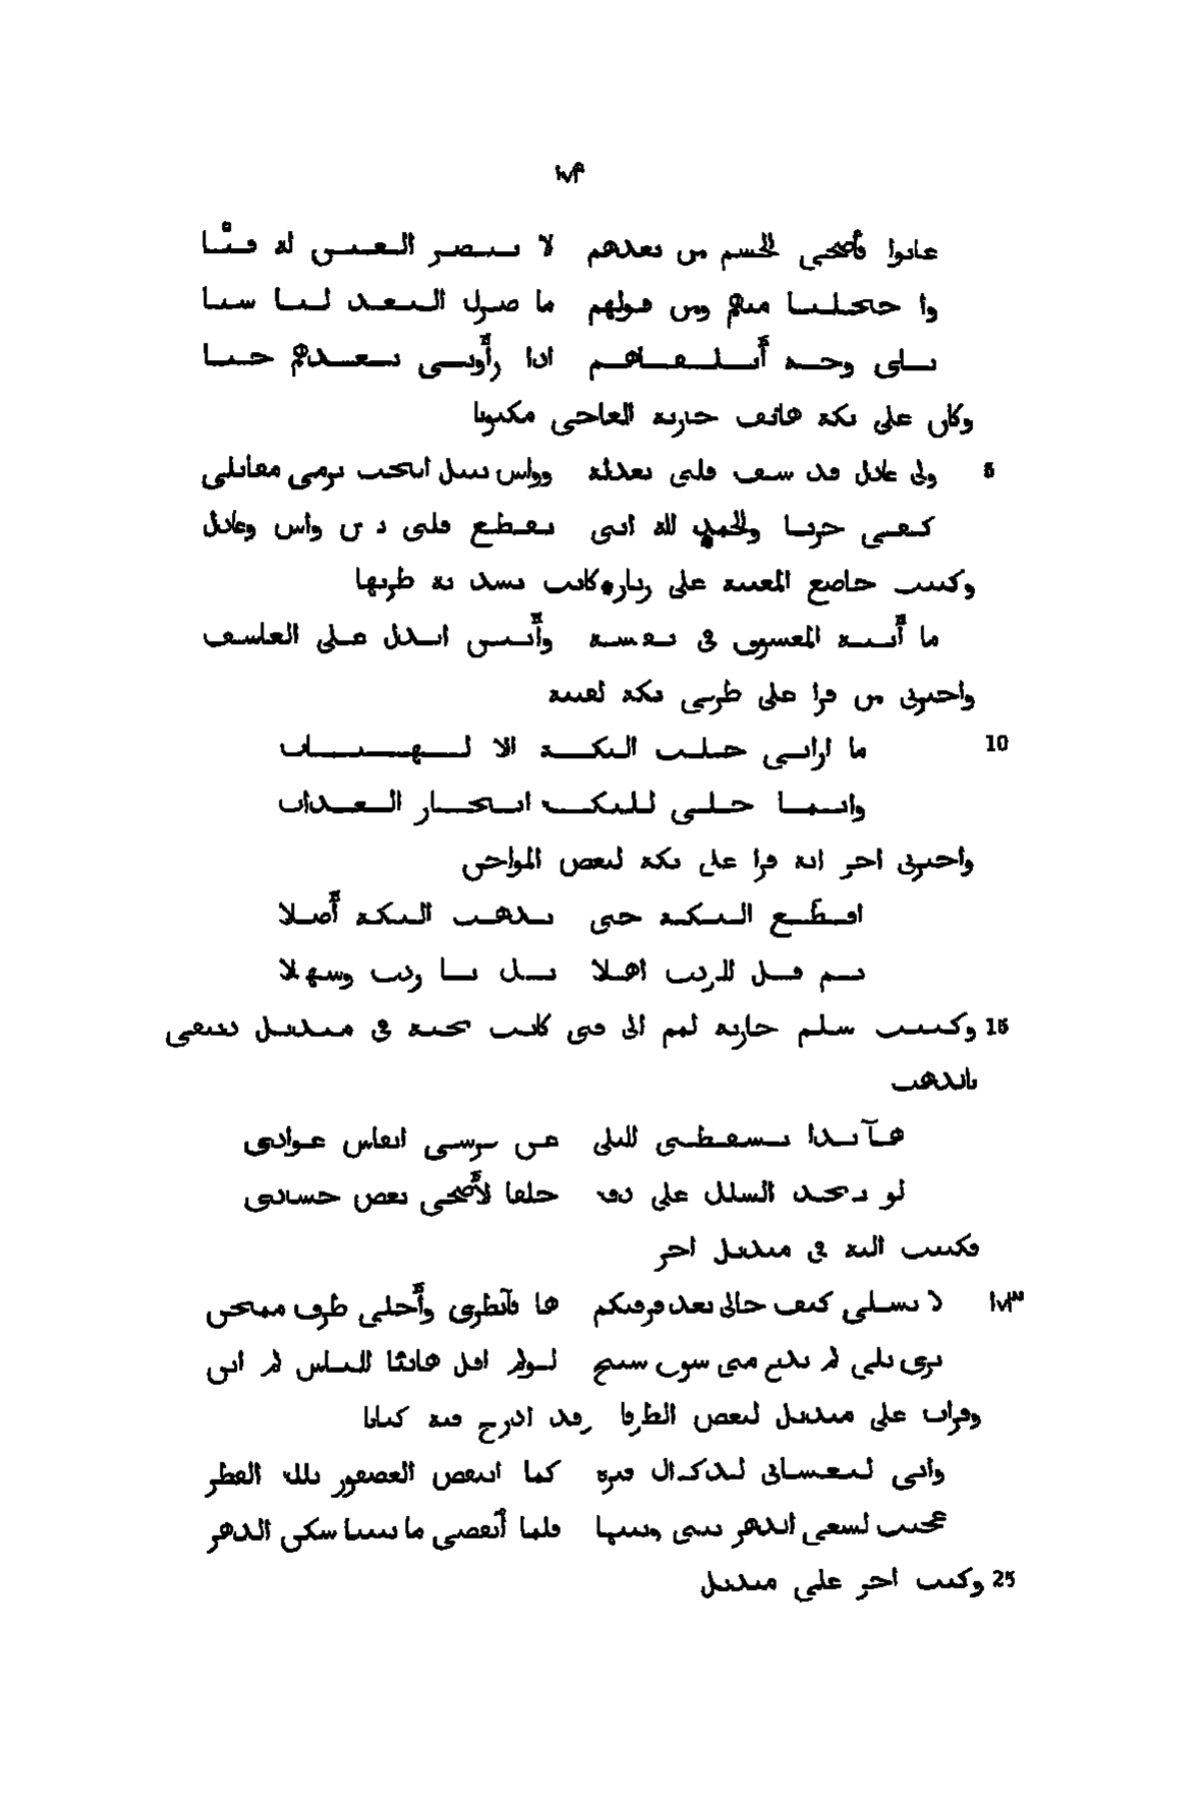 ١٧٤
غابوا فأضحى الجسم من بعدهم   لا تبصر العين له فيّا
وا خجلتا منهم ومن قولهم   ما ضرك البعد لنا شيا
باى وجه أتلقاهم   اذا رأونى بعدهم حيا
وكان على تكة هاتف جارية مكتوبا
5 ولى عاذل قد شف قلبى بعذله   وواش بنبل يرمى مقاتلى
كفى حزنا والحمد لله اننى   تقطع قلبى بين واش وعاذل
وكتبت خاضع المغنية على زنار وكانت تشد به طرتها
ما أتيه المعشوق فى نفسه   وأبين الذل على العاشق
واخبرنى من قرا على طرفى تكة لقينة
10 ما ارانى حلت التكة الا لهنات
وانما حلى للتكة انجاز العدات
واخبرنى اخر انه قرا على تكة لبعض المواجن
اقطع التكة حتى   تذهب التكة أصلا
ثم قل للردف اهلا   بك يا ردف وسهلا
15 وكتبت سلم جارية لهم الى فتى كانت تحبه فى منديل دبيقى
بالذهب
هآنذا يسقطنى للبلى   عن فرشى انفاس عوادى
لو يجد السلك على دقه   خلقا لأضحى بعض حسادى
فكتب اليه فى منديل اخر
١٧٣ لا تسلى كيف حالى بعد فرقتكم   ها فآنظرى وأجلى طرف ممتحن
ترى بلى لم يدع منى سوى شبح   لو لم اقل هانذا للناس لم ابن
وقرات على منديل لبعض الظرفا وقد ادرج فيه كتابا
وانى لتغشانى لذكراك فترة   كما انتفض العصفور بلله القطر
عجبت لسعى الدهر بينى وبينها   فلما أنقضى ما بيننا سكن الدهر
25 وكتب اخر على منديل